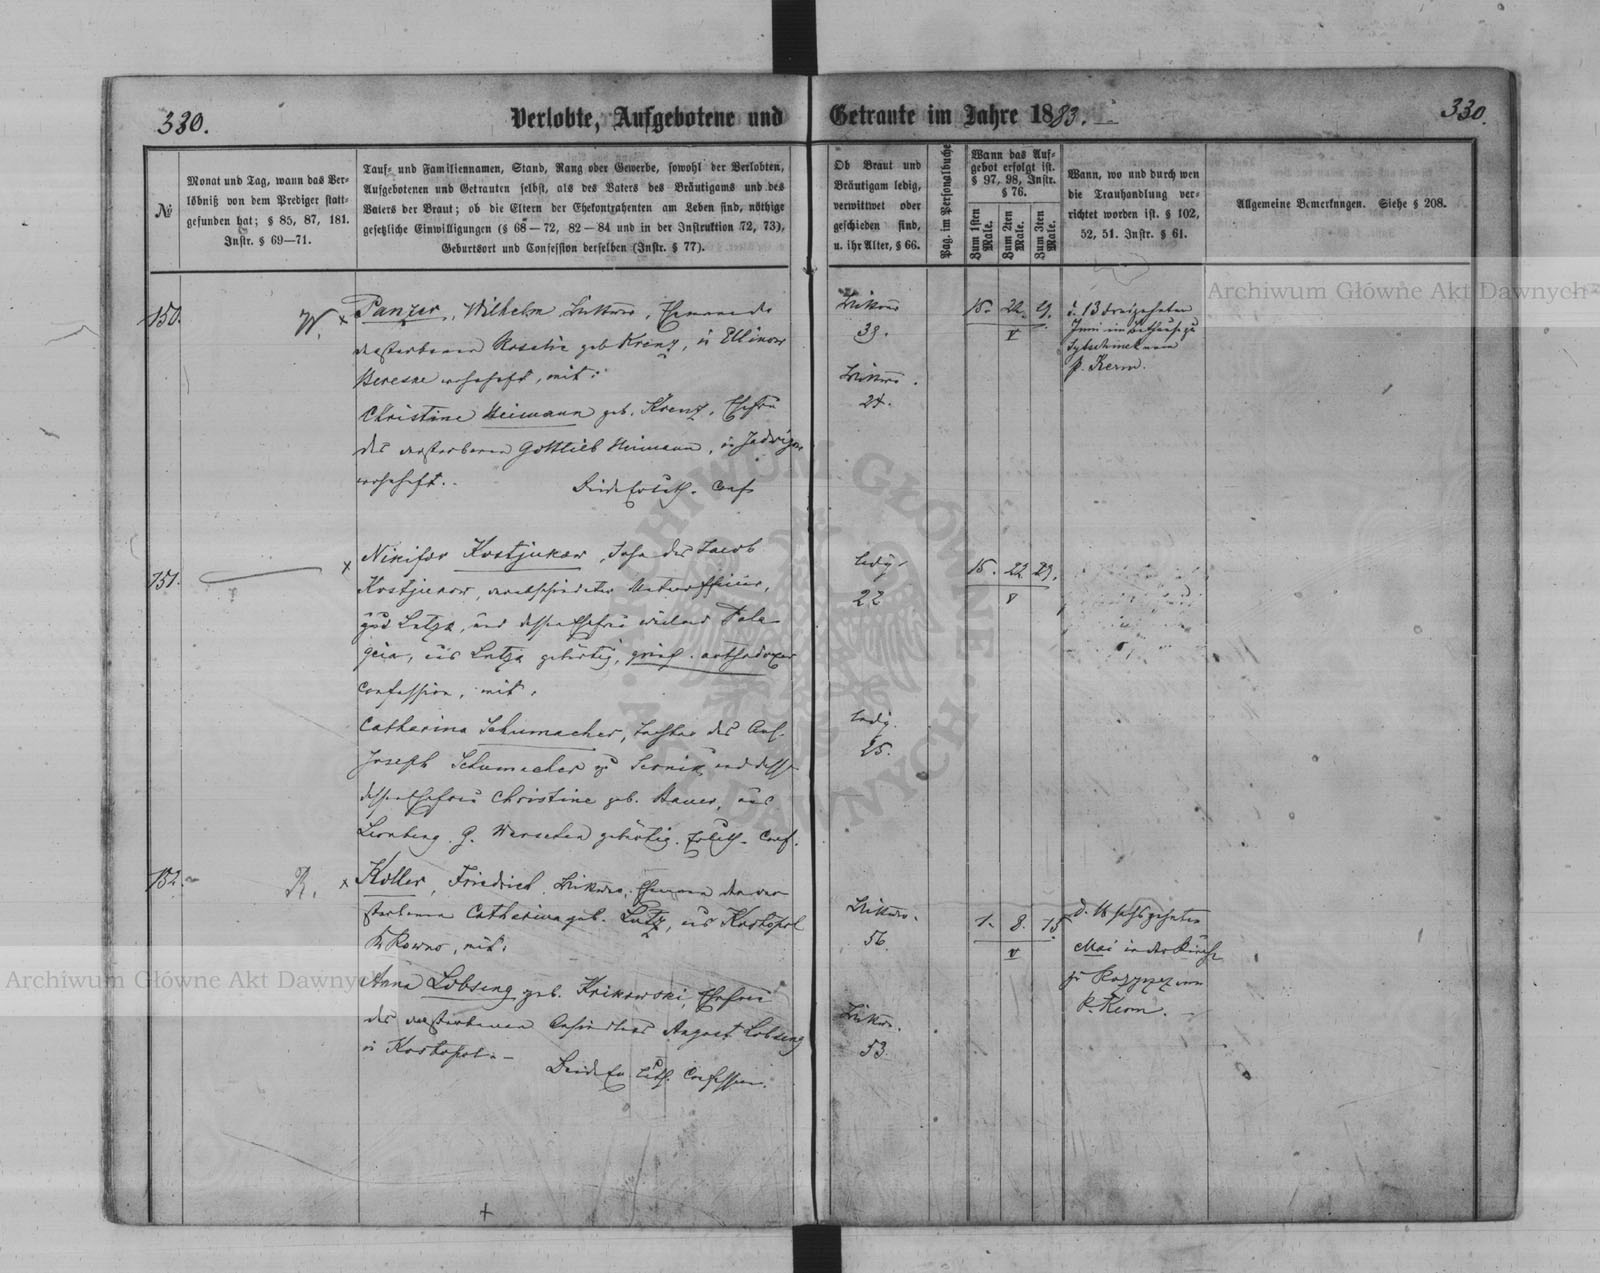 330.
Verlobte, Aufgebotene und Getraute im Jahre 1883.
330.
№
Monat und Tag, wann das Ver-
löbniß von dem Prediger statt-
gefunden hat; § 85, 87, 181.
Instr. § 69—71.
Tauf- und Familiennamen, Stand, Rang oder Gewerbe, sowohl der Verlobten,
Aufgebotenen und Getrauten selbst, als des Vaters des Bräutigams und des
Vaters der Braut; ob die Eltern der Ehekontrahenten am Leben sind, nöthige
gesetzliche Einwilligungen (§ 68—72, 82—84 und in der Instruktion 72, 73),
Geburtsort und Confession derselben (Instr. § 77).
Ob Braut und
Bräutigam ledig,
verwittwet oder
geschieden sind,
u. ihr Alter, § 66.
Pag. im Personalbuche
Wann das Auf-
gebot erfolgt ist.
§ 97, 98, Instr.
§ 76.
Zum 1sten
Male.
Zum 2ten
Male.
Zum 3ten
Male.
Wann, wo und durch wen
die Trauhandlung ver-
richtet worden ist. § 102,
52, 51. Instr. § 61.
Allgemeine Bemerkungen. Siehe § 208.
150.
W. x
Panzer, Wilhelm, Wittwer, Ehemann der
verstorbenen Rosalie geb. Krenz, in Ellinow
wohnhaft, mit:
Christine Heimann geb. Krenz, Ehefrau
des verstorbenen Gottlieb Heimann, in
wohnhaft.
Beide Ev. luth. Conf.
Wittwer
39.
Wittwe.
24.
15. 22. 29.
V
d. 13 dreizehnten
Juni im Bethause zu
von
P. Kerm.
151.
x
Nikifor Kostjukow, Sohn des Jacob
Kostjukow, verabschiedeter Unteroffizier,
aus Lutzk, und dessen Ehefrau weiland Pala-
geia, aus Lutzk gebürtig, griech. orthodoxer
Confession, mit,
Catharina Schumacher, Tochter des Ans.
Joseph Schumacher zu Sernik und dessen
dessen Ehefrau Christine geb. Bauer, aus
Lemberg, G. Warschau gebürtig. Ev. luth. Conf.
ledig.
22
ledig.
25.
15. 22 29.
V
152.
R. x
Koller, Friedrich, Wittwer, Ehemann der ver-
storbenen Catharina geb. Lutz, aus Kostopol
b. Rowno, mit:
Anna Lobseng geb. Krikowski, Ehefrau
des verstorbenen Ansiedlers August Lobseng
in Kostopol.
Beide Ev. luth. Confession.
Wittwer.
56.
Wittwe.
53.
1. 8. 15.
V
d. 16 sechszehnten
Mai in der Kirche
zu Rożyszcze von
P. Kerm.
Archiwum Główne Akt Dawnych
Archiwum Główne Akt Dawnych
ARCHIWUM GŁÓWNE AKT DAWNYCH